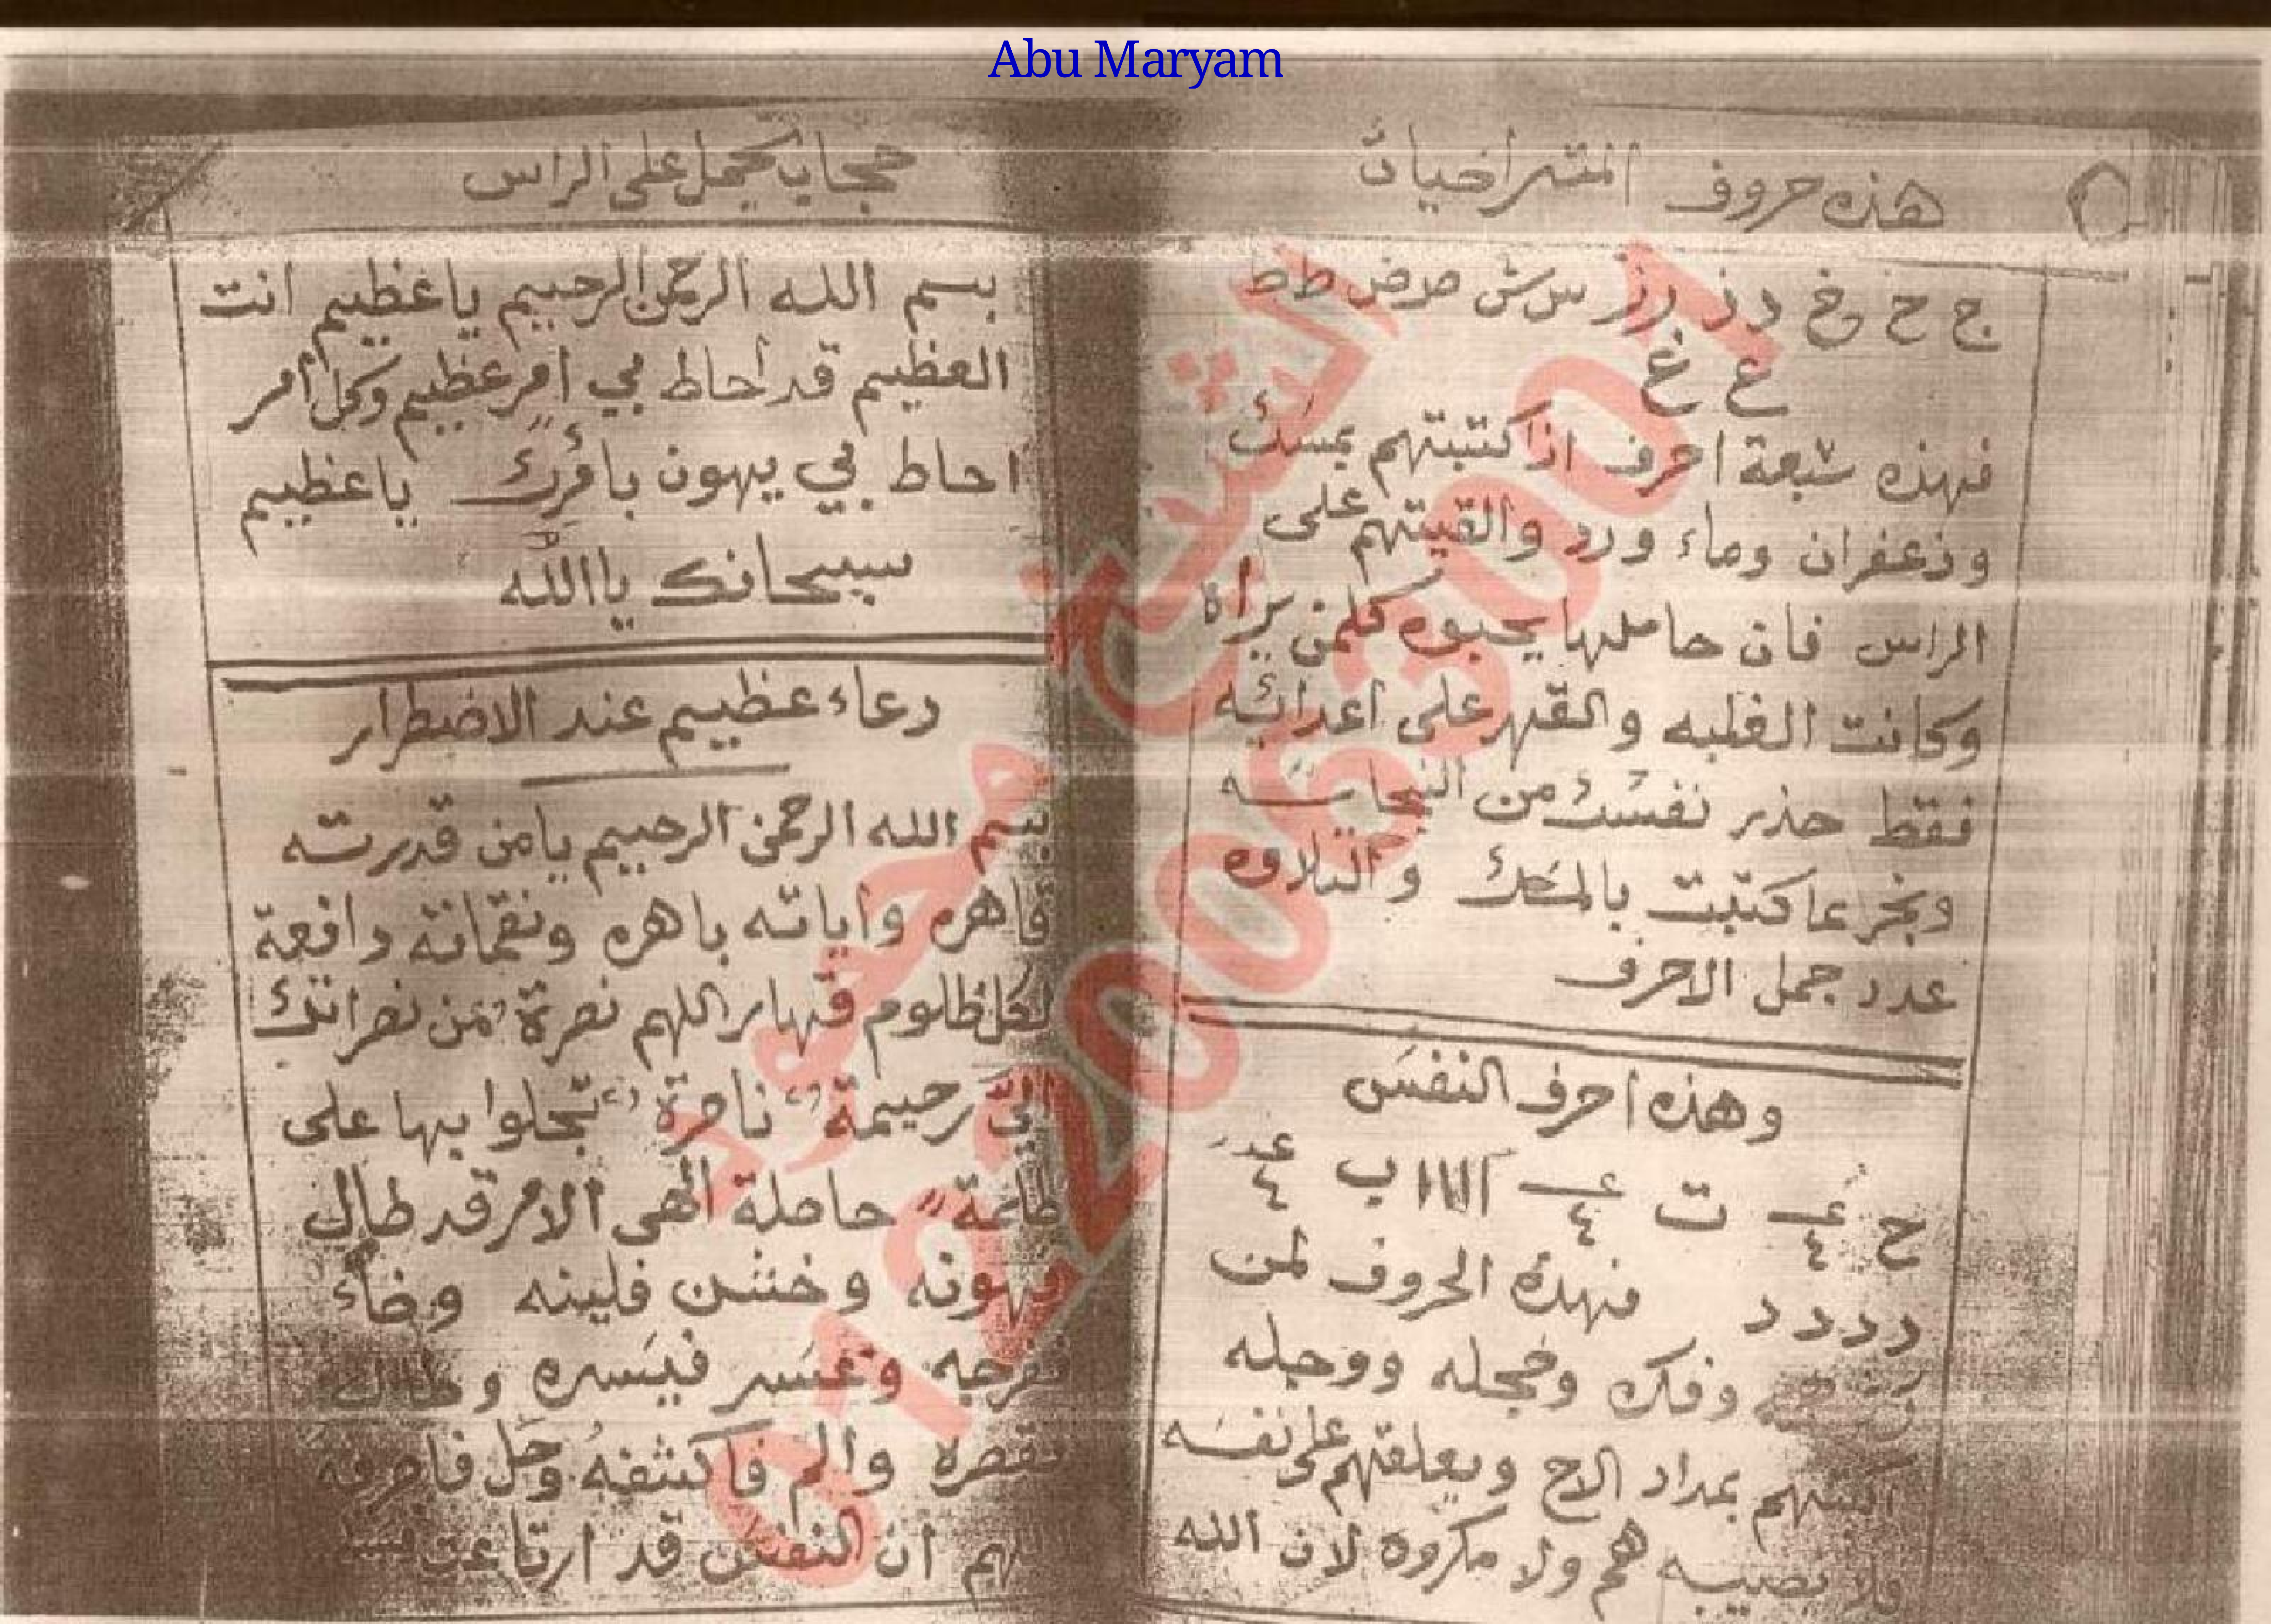 Abu Maryam
هذه حروف
ج ح خ د ذ ر ز س ش ص ض ط ظ
ع غ
فهذه سبعة احرف اذا كتبتهم بمسك
وزعفران وماء ورد والقيتهم على
الراس فان حاملها يحبوه كلمن يراه
وكانت الغلبه والقهر على اعدائه
فقط حذر نفسك من النجاسه
وبخر ما كتبت بالمسك والتلاوه
عدد جمل الاحرف
وهذه احرف النفس
ح ٤ ت ٤ ااااا ب ٤
د د د د فهذه الحروف لمن
وفكره وخجله ووجله
اكتبهم بمداد الاح ويعلقهم على نفسه
فلا يصيبه هم ولا مكروه لان الله
حجاب يحمل على الراس
بسم الله الرحمن الرحييم ياعظييم انت
العظيم قد احاط بي امر عظيم وكل امر
احاط بي يهون بامرك ياعظييم
سبحانك ياالله
دعاء عظييم عند الاضطرار
بسم الله الرحمن الرحييم يامن قدرته
قاهره واياته باهره ونقماته دافعة
لكل ظلوم قهار اللهم نصرة من نصراتك
اليّ رحيمة ناصرة تجلوا بها على
حاصلة الهي الامر قد طال
فهونه وخشن فلينه وضاء
ففرجه وعسر فيسره وطال
فقصره والم فاكشفه وحل فاصرفه
اللهم ان النفس قد ارتاعت
الشيخ محمود
01220063001